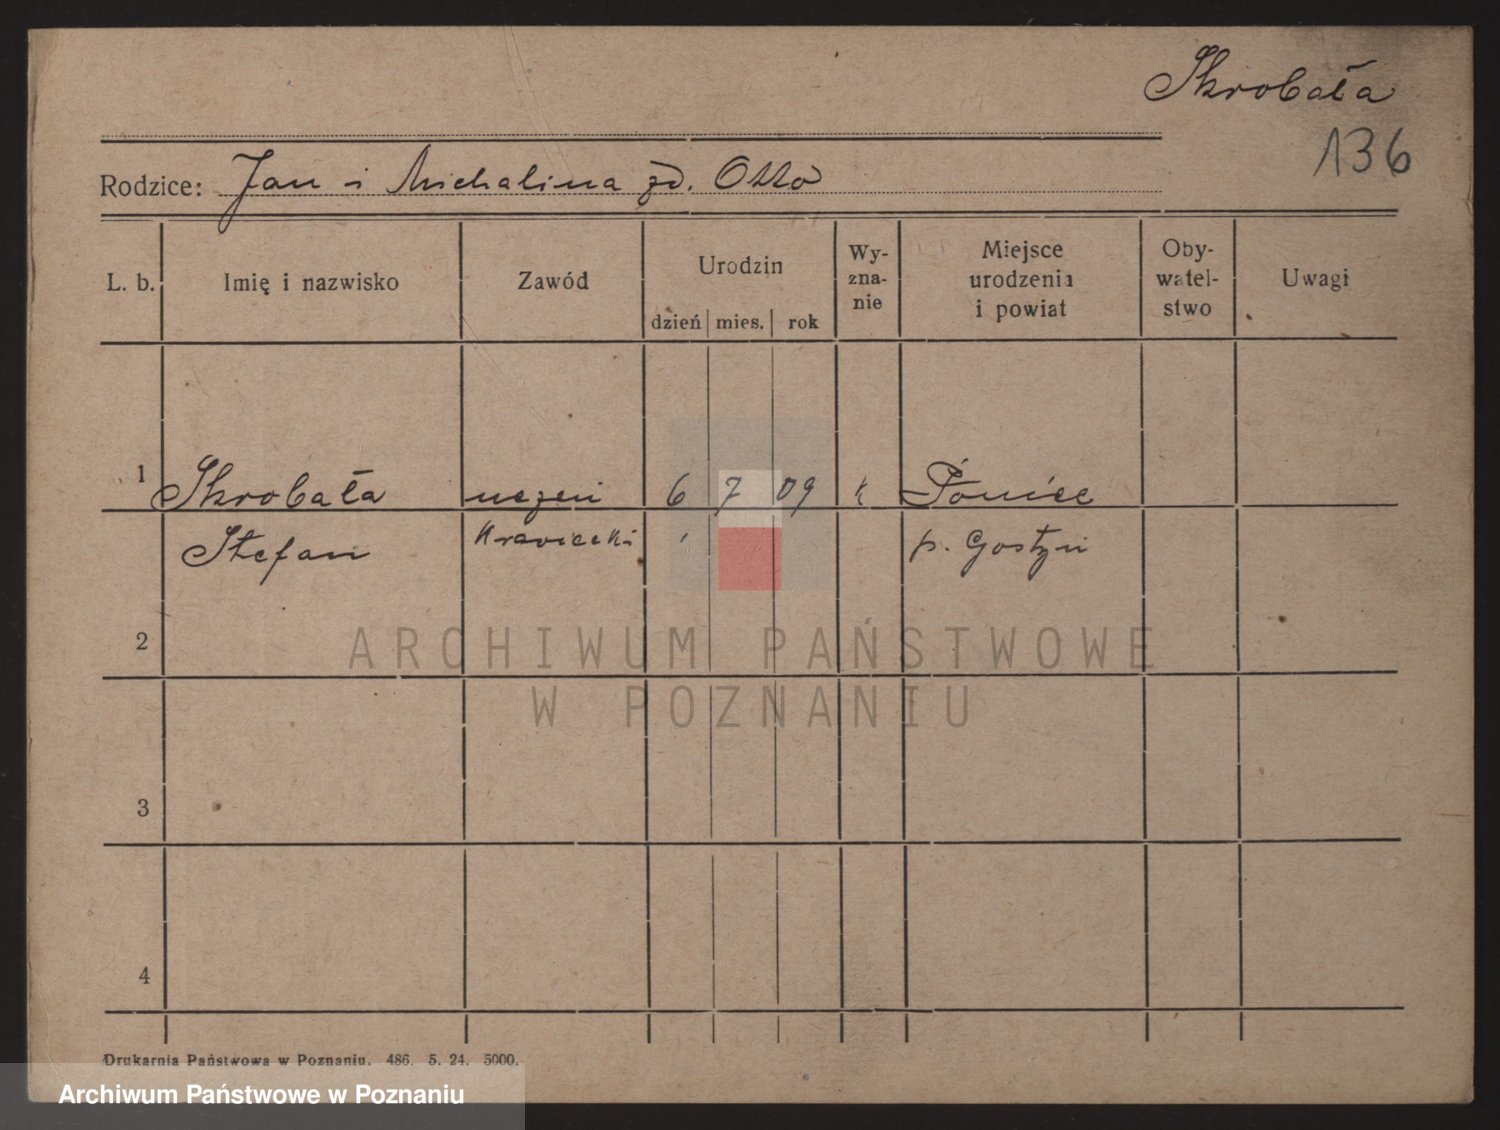 Skrobała
136
Rodzice: Jan i Michalina zd. Otto
L. b.
Imię i nazwisko
Zawód
Urodzin
dzień mies. rok
Wy-
zna-
nie
Miejsce
urodzenia
i powiat
Oby-
watel-
stwo
Uwagi
1 Skrobała uczeń 6 7 09 k Poniec
Stefan krawiecki p. Gostyń
2
3
4
ARCHIWUM PAŃSTWOWE
W POZNANIU
Drukarnia Państwowa w Poznaniu. 486. 5. 24. 5000.
Archiwum Państwowe w Poznaniu